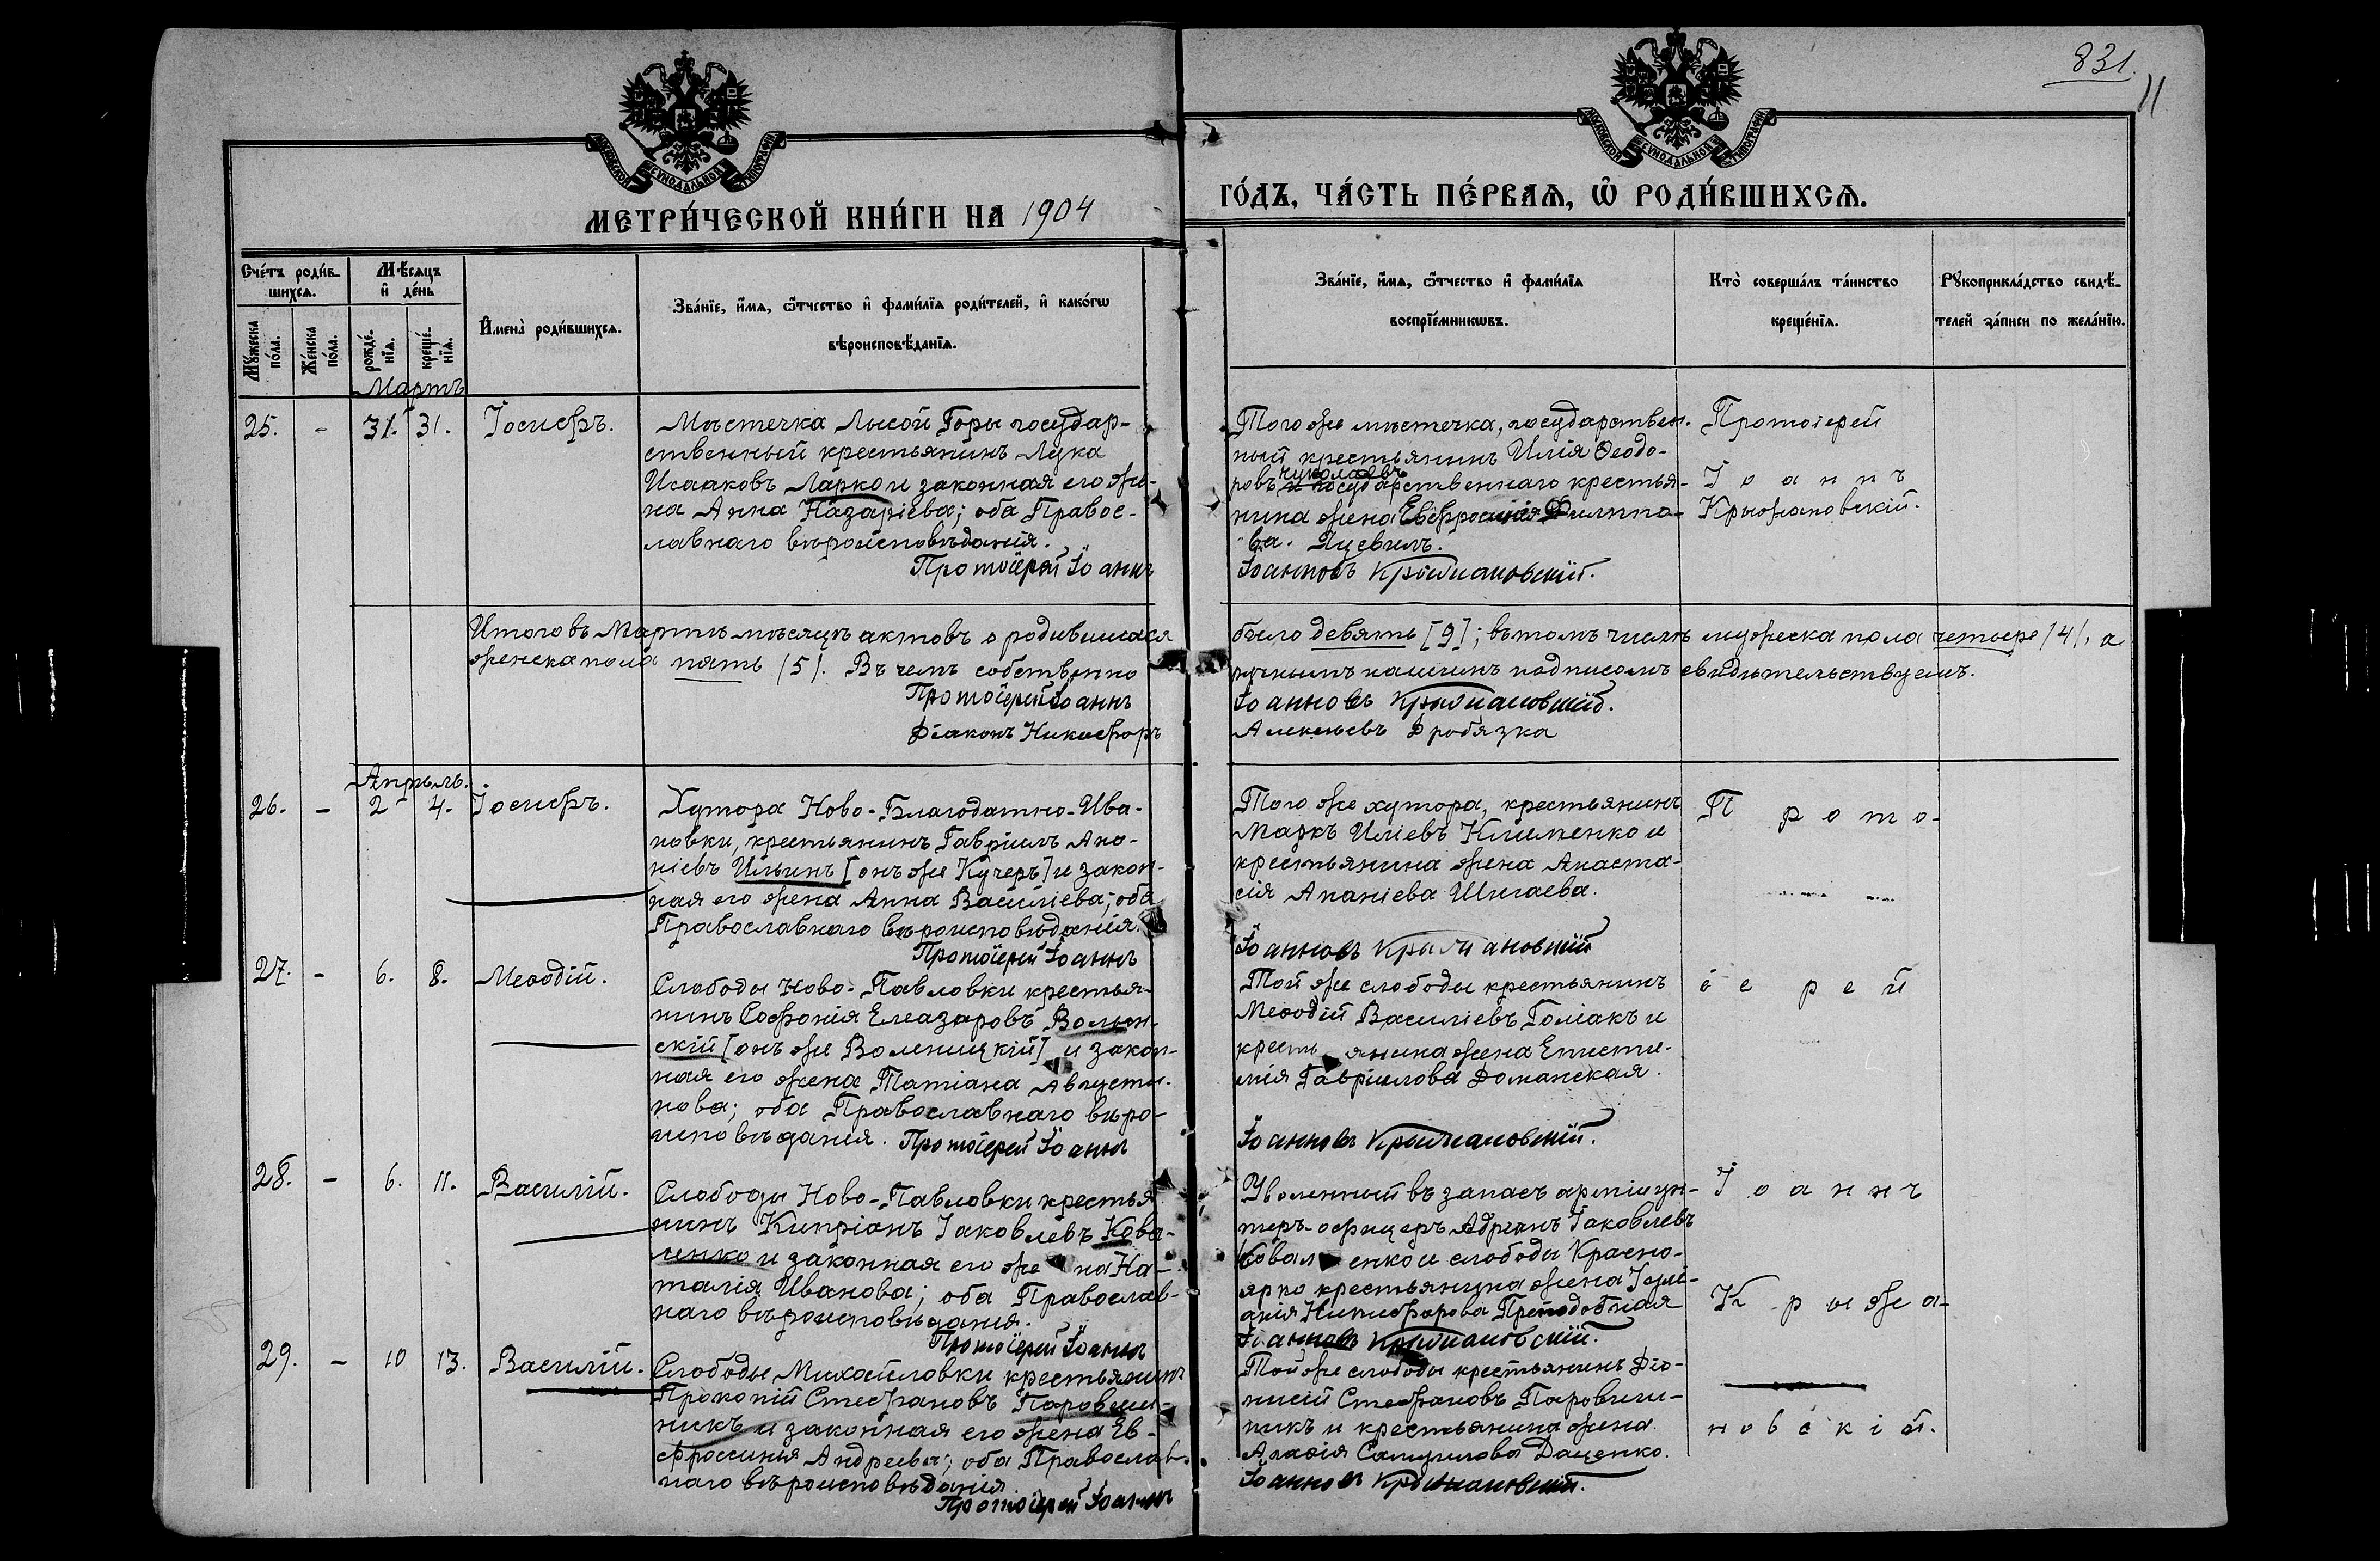 831.
11
МОСКОВСКОЙ СѴНОДАЛЬНОЙ ТИПОГРАФІИ
МОСКОВСКОЙ СѴНОДАЛЬНОЙ ТИПОГРАФІИ
МЕТРИ́ЧЕСКОЙ КНИ́ГИ НА 1904
ГО́ДЪ, ЧА́СТЬ ПЕ́РВАѦ, Ѽ РОДИ́ВШИХСѦ.
Сче́тъ роди́в-
шихсѧ.
Мꙋжеска по́ла.
Же́нска по́ла.
Мѣ́сѧцъ
и҆ де́нь
рожде́-нїѧ.
креще́-нїѧ.
И҆мена̀ роди́вшихсѧ.
Зва́нїе, и҆́мѧ, ѻ҆́тчество и҆ фамѝлїѧ роди́телей, и҆ како́гѡ
вѣроисповѣ́данїѧ.
Зва́нїе, и҆́мѧ, ѻ҆́тчество и҆ фами́лїѧ
воспрїе́мникѡвъ.
Кто̀ соверша́лъ та́инство
креще́нїѧ.
Рꙋкоприкла́дство свидѣ́-
телей за́писи по жела́нїю.
Мартъ
25. - 31. 31. Іосифъ.
Мѣстечка Лысой Горы государ-
ственный крестьянинъ Лука
Исааковъ Ларко и законная его же-
на Анна Назаріева; оба Правос-
лавнаго вѣроисповѣданія.
Протоіерей Іоаннъ
Того же мѣстечка, государствен-
ный крестьянинъ Илія Ѳеодо-
ровъ и государственнаго крестья-
нина жена Евфросинія Филипо-
ва Яцевилъ.
Іоанновъ Крыжановскій.
Протоіерей
Іоаннъ
Крыжановскій.
Итого въ Мартѣ мѣсяцѣ актовъ о родившихся
было девять [9]; въ томъ числѣ мужеска пола четыре (4), а
женска пола пять (5). Въ чемъ собственно
ручнымъ нашимъ подписомъ свидѣтельствуемъ.
Протоіерей Іоаннъ
Іоанновъ Крыжановскій.
Діаконъ Никифоръ
Алексѣевъ Дробязка
Апрѣль.
26. - 2 4. Іосифъ.
Хутора Ново-Благодатно-Ива-
новки, крестьянинъ Гавріилъ Ано-
ніевъ Ильинъ [онъ же Кучеръ] и закон-
ная его жена Анна Василіева; оба
Православнаго вѣроисповѣданія.
Протоіерей Іоаннъ
Того же хутора, крестьянинъ
Маркъ Иліевъ Клименко и
крестьянина жена Анаста-
сія Ананіева Шигаева.
Іоанновъ Крыжановскій
Прото-
27. - 6. 8. Меѳодій.
Слободы Ново-Павловки крестья-
нинъ Софонія Елеазаровъ Волын-
скій [онъ же Воленицкій] и закон-
ная его жена Татіана Августи-
нова; оба Православнаго вѣро-
исповѣданія. Протоіерей Іоаннъ
Той же слободы крестьянинъ
Меѳодій Василіевъ Голіакъ и
крестьянина жена Еписти-
мія Гавріилова Доманская.
Іоанновъ Крыжановскій.
іерей
28. - 6. 11. Василій.
Слободы Ново-Павловки крестья
нинъ Кипріанъ Іаковлевъ Кова-
ленко и законная его жена На-
талія Иванова; оба Православ-
наго вѣроисповѣданія.
Протоіерей Іоаннъ
Уволенный въ запасъ арміи ун-
теръ-офицеръ Адріанъ Іаковлевъ
Коваленко и слободы Красно-
ярко крестьянина жена Іули-
анія Никифорова Преподобная
Іоанновъ Крыжановскій.
Іоаннъ
Крыжа-
29. - 10 13. Василій.
Слободы Михайловки крестьянинъ
Прокопій Стефановъ Паровыш-
никъ и законная его жена Ев-
фросинія Андреева; оба Православ-
наго вѣроисповѣданія.
Протоіерей Іоаннъ
Той же слободы крестьянинъ Діо-
нисій Стефановъ Паровиш-
никъ и крестьянина жена
Агаѳія Самуилова Даценко.
Іоанновъ Крыжановскій.
новскій.